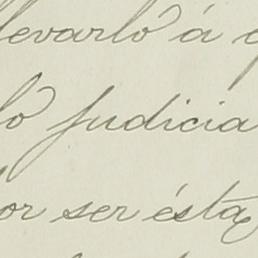 levarlo á
lo judicia
or ser ésta